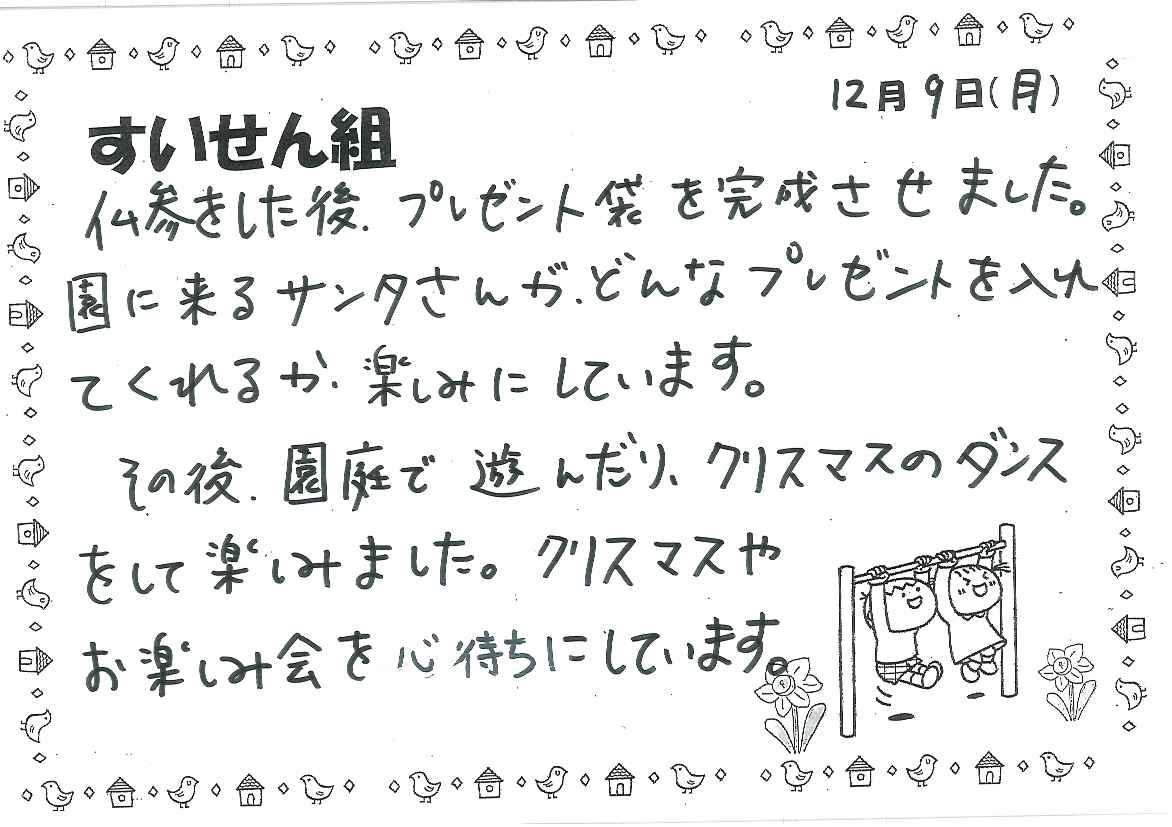 12月9日(月)
すいせん組
仏参をした後、プレゼント袋を完成させました。
園に来るサンタさんが、どんなプレゼントを入れ
てくれるか、楽しみにしています。
その後、園庭で遊んだり、クリスマスのダンス
をして楽しみました。クリスマスや
お楽しみ会を心待ちにしています。